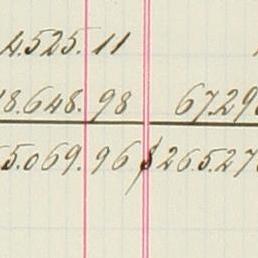 4.525.11
18.648.98 67.29
5.069.96 $265.27